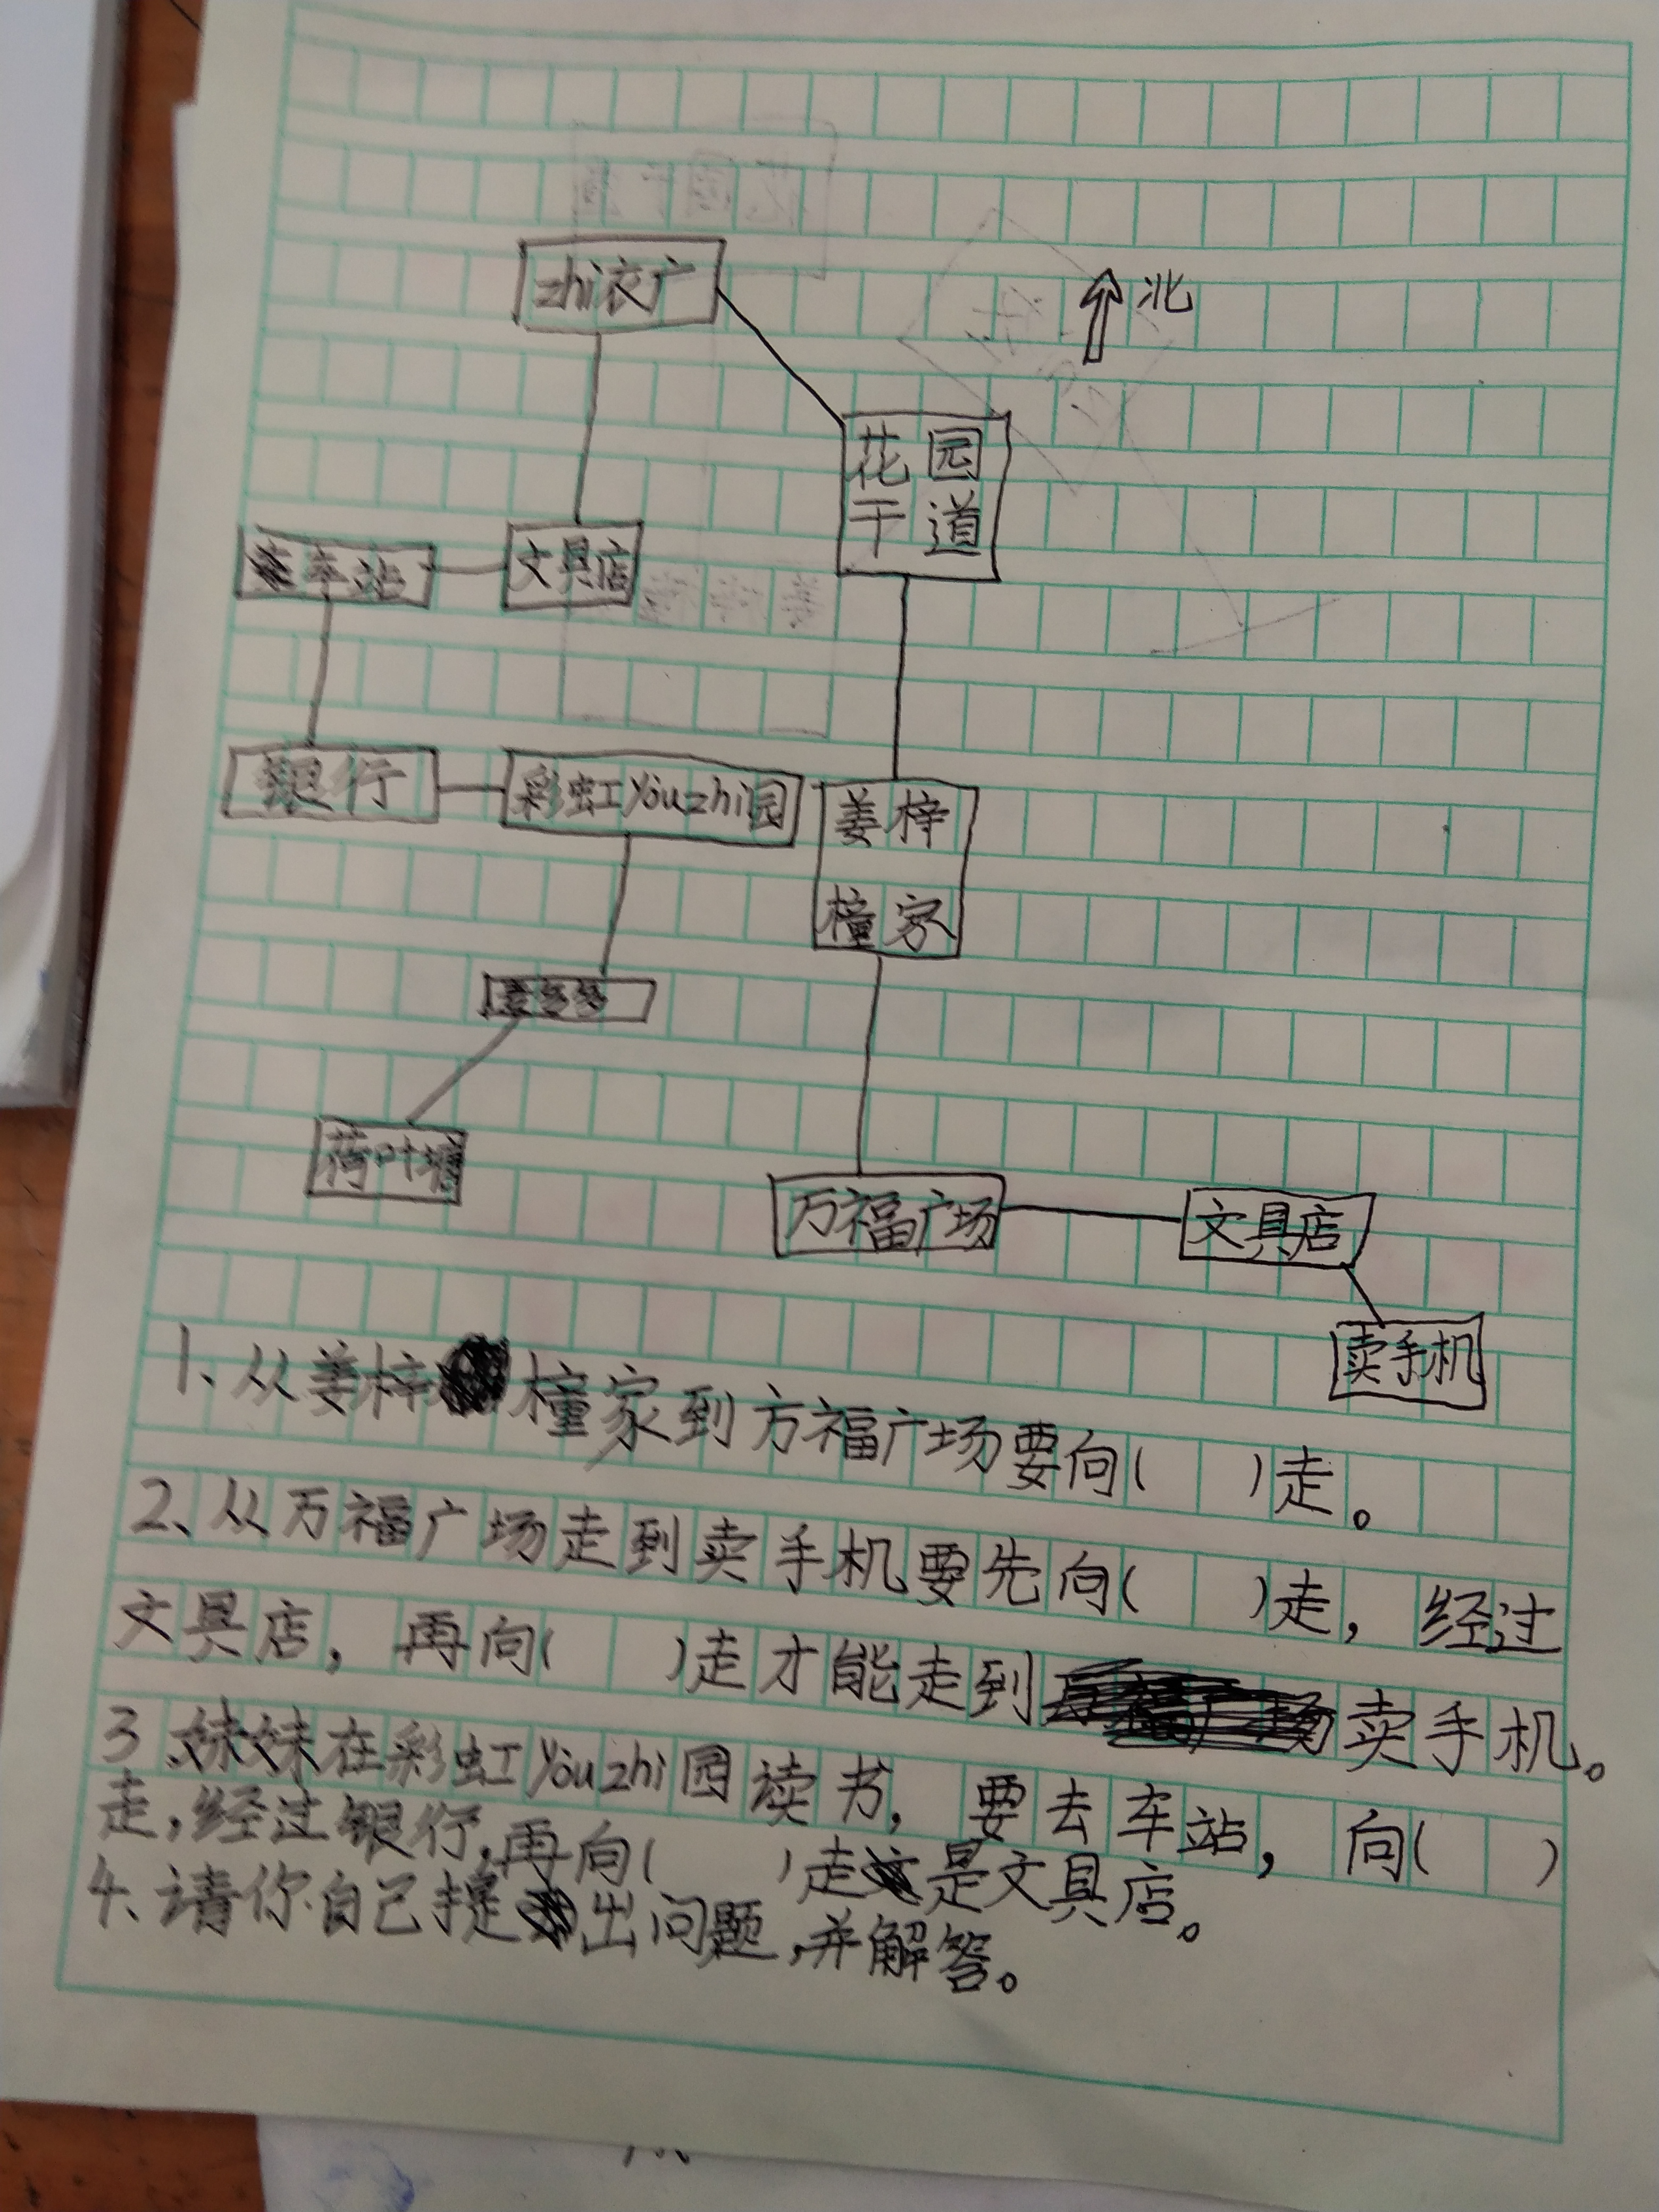 zhi衣广
北
花园
干道
车站
文具店
银行
彩虹youzhi园
姜梓
橦家
荷叶塘
万福广场
文具店
卖手机
1、从姜梓橦家到方福广场要向( )走。
2、从万福广场走到卖手机要先向( )走，经过
文具店，再向( )走才能走到卖手机。
3、妹妹在彩虹youzhi园读书，要去车站，向( )
走，经过银行，再向( )走是文具店。
4、请你自己提出问题，并解答。